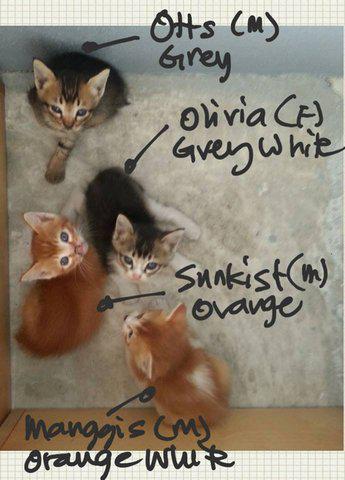 Otts (M)
Grey
Olivia (F)
Grey White
Sunkist (M)
Orange
Manggis (M)
Orange White